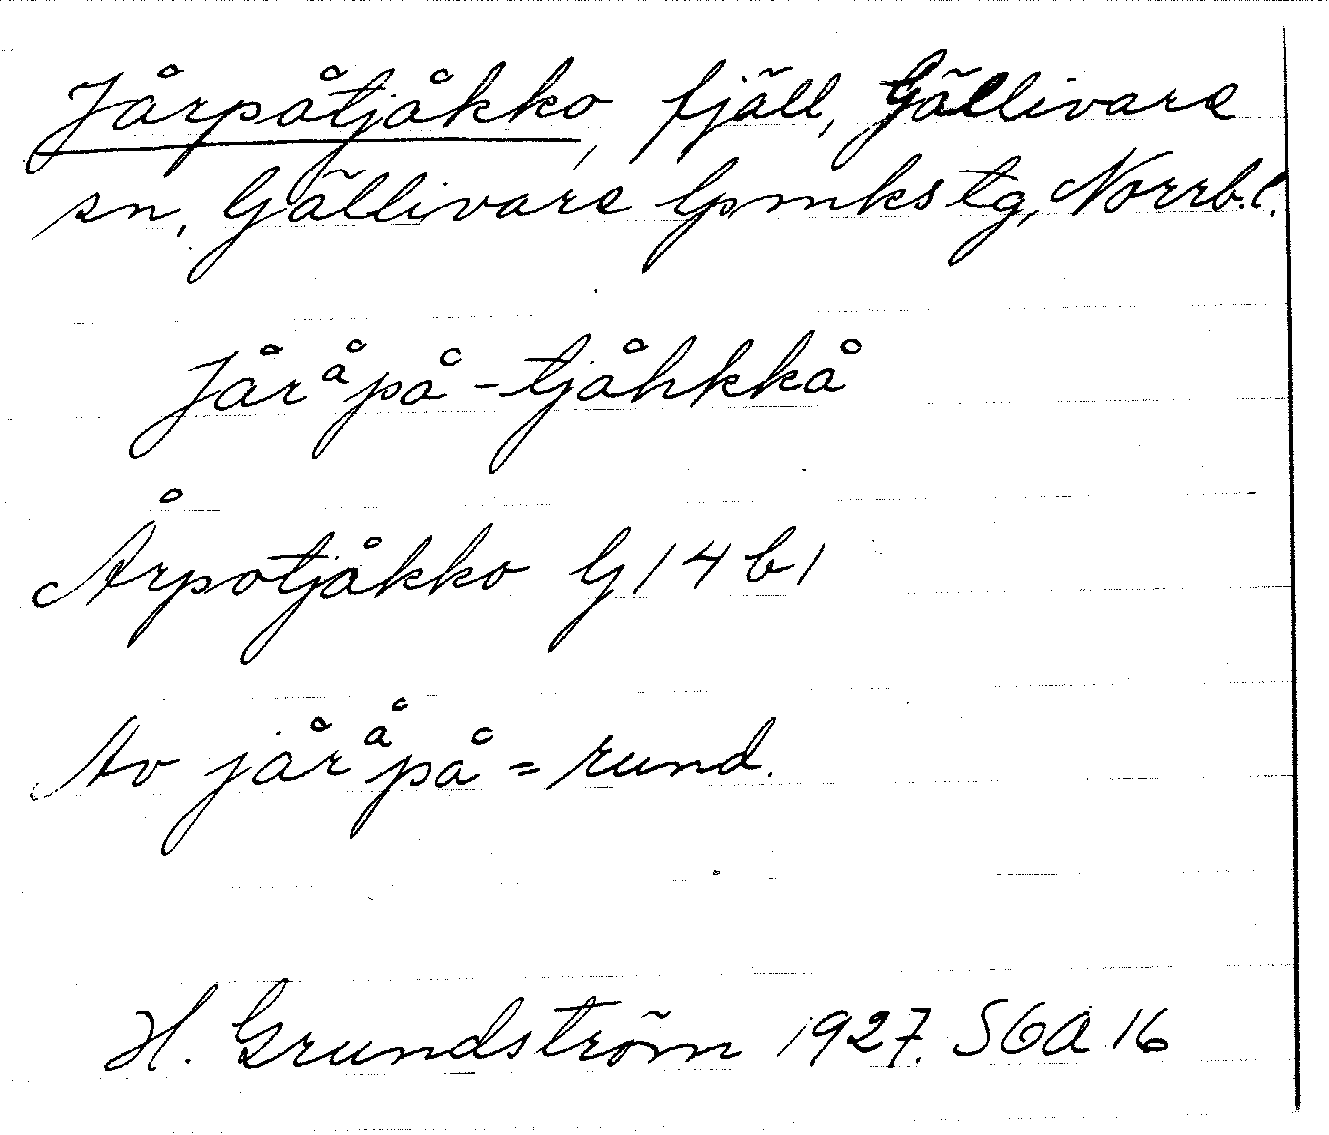 Jårpåtjåkko, fjäll, Gällivare
sn, Gällivare lpmkstg, Norrb.l.
Jåråpå-tjåhkkå
Årpotjåkko G 14 b 1
Av jåråpå = rund.
H. Grundström 1927. SGA 16